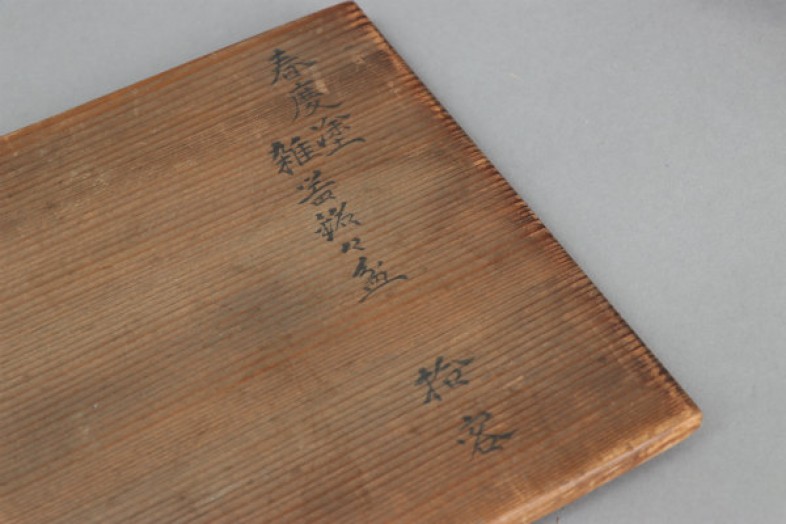 春慶塗
雑器銘々盆
拾客